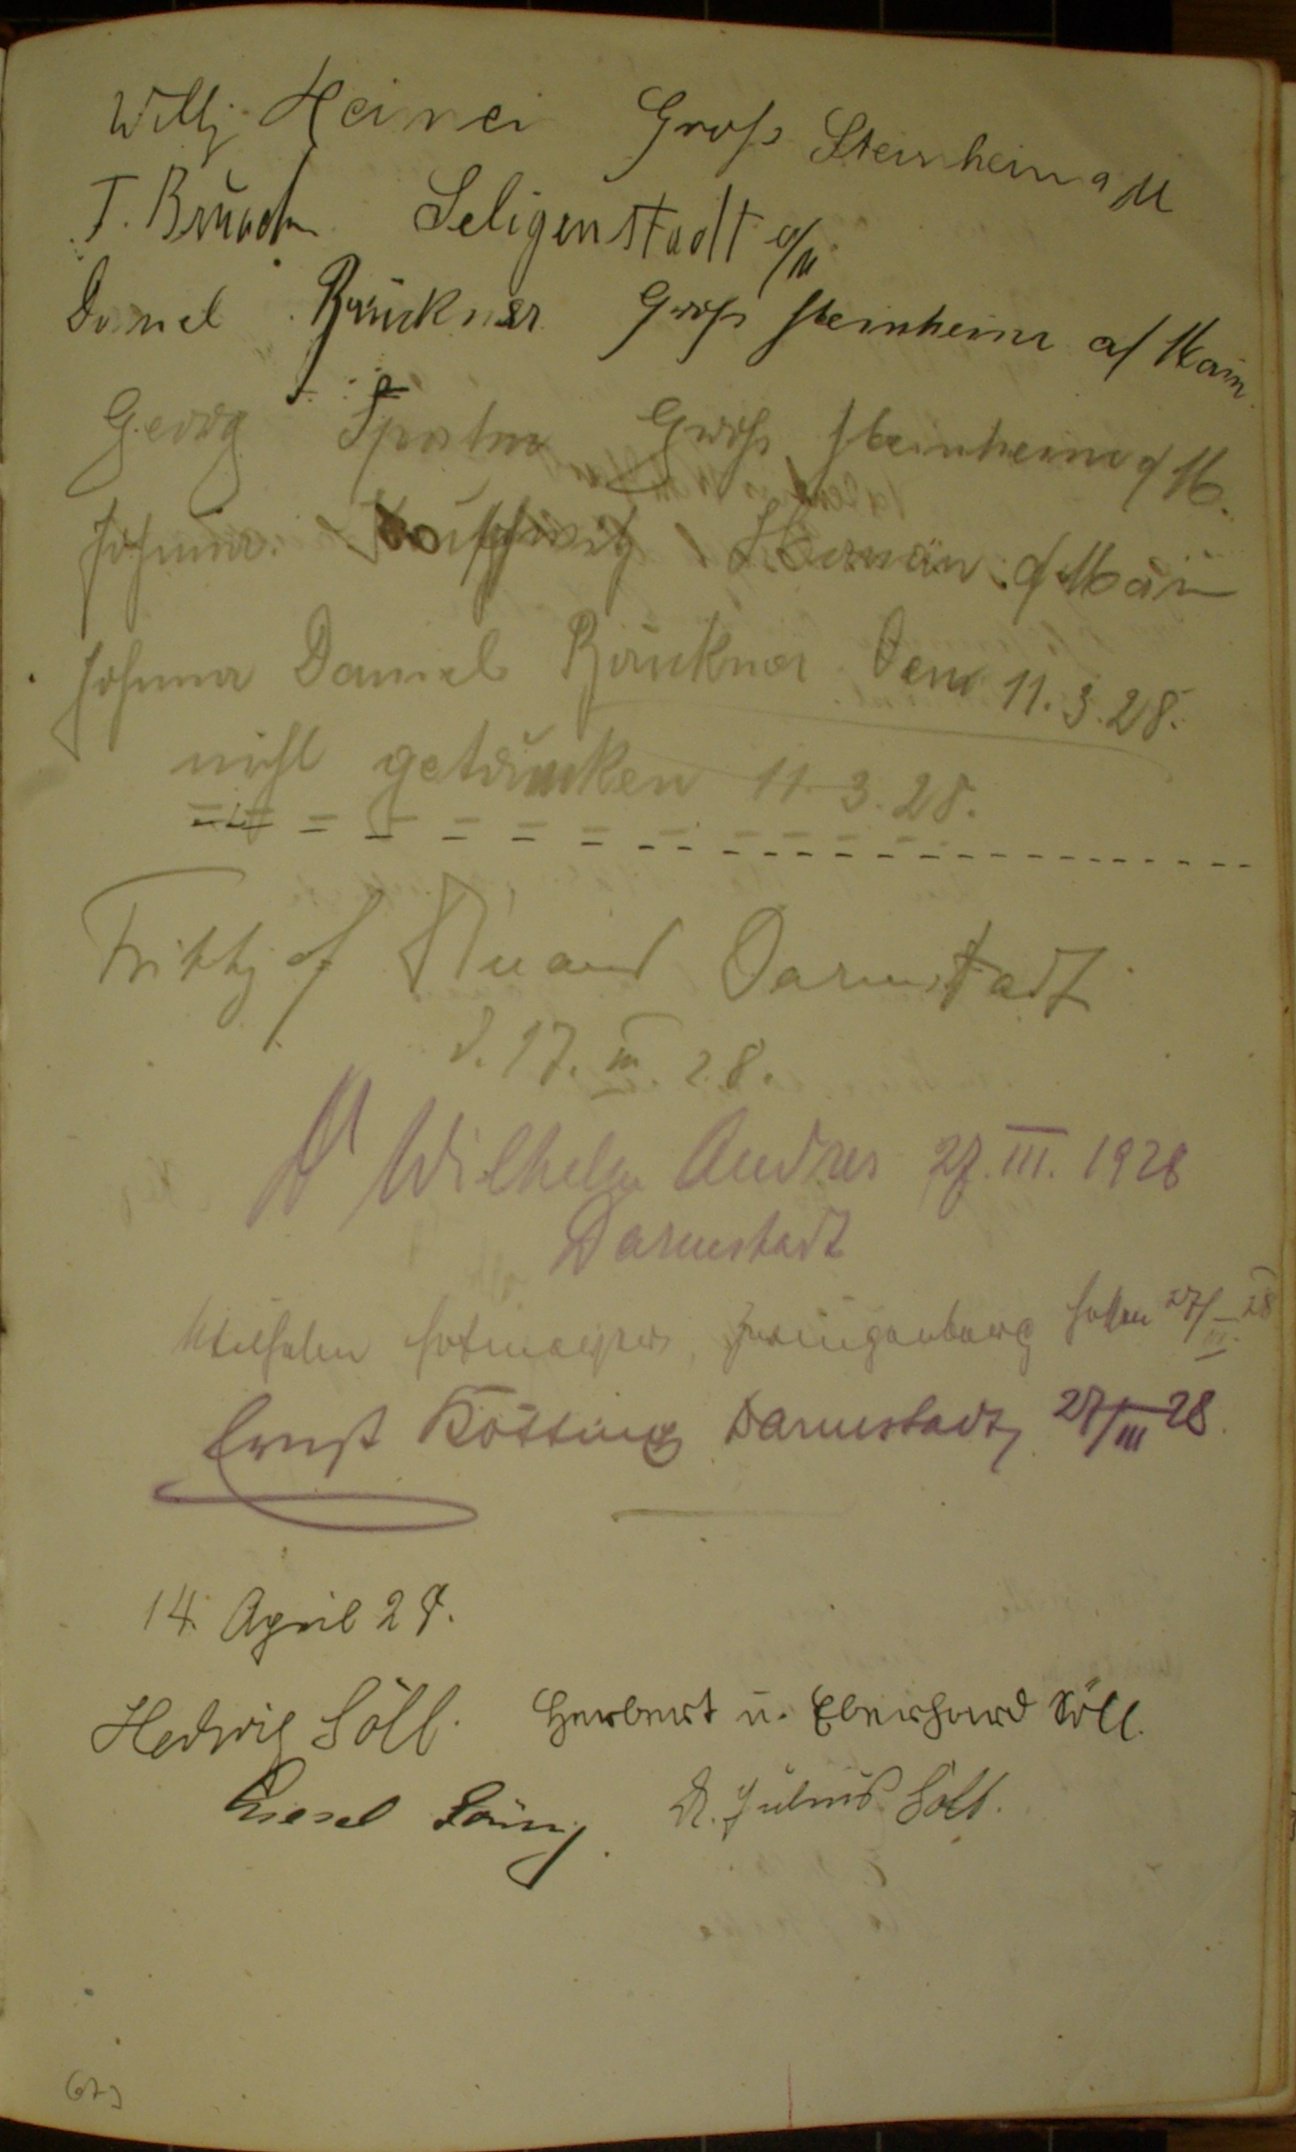 Willy Heinei Groß Steinheim a M
T. Bruder Seligenstadt a/M
Daniel Brückner Groß Steinheim a/ Main
Georg Groß Steinheim a/ M.
Johann
Johann Daniel Brückner Den 11.3.28.
nicht getrunken 11.3.28.
Frithjof Darmstadt
d. 17. III. 28.
Dr Wilhelm Andres 27. III. 1928
Darmstadt
Wilhelm Zwingenberg Hessen 27/III 28
Ernst Kötting Darmstadt, 27/III 28.
14. April 28.
Hedwig Söll. Herbert u. Eberhard Söll.
Liesel Dr. Julius Söll.